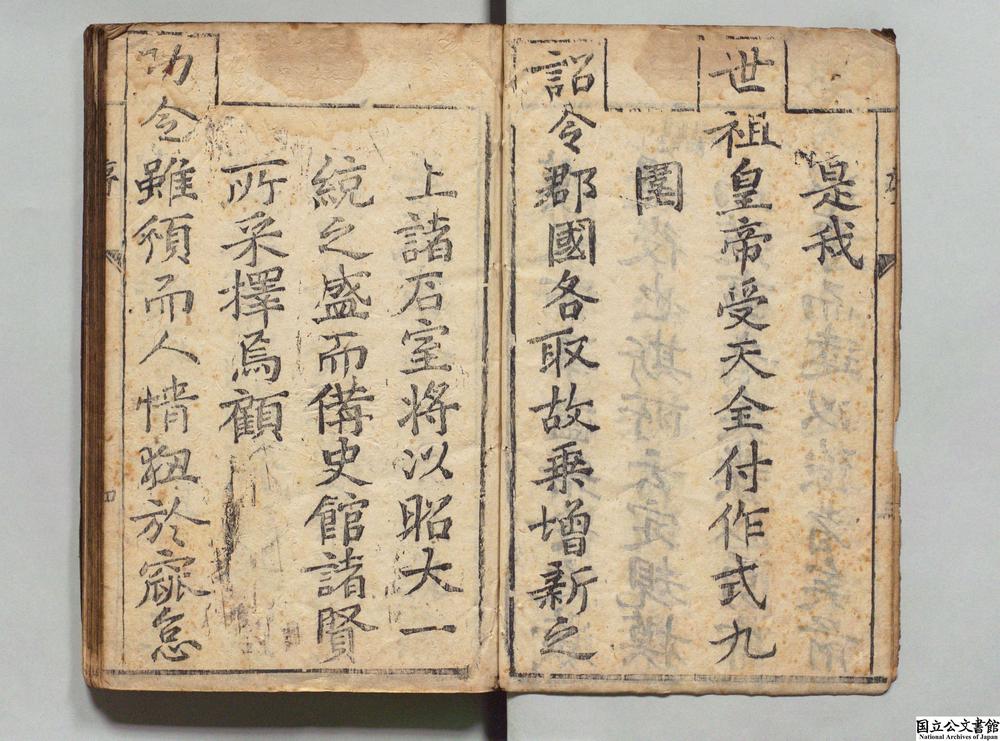 是我
世祖皇帝受天全付作式九
圍
詔令郡國各取故乗增新之
上諸石室将以昭大一
統之盛而備史館諸賢
所采擇焉顧
功令雖頒而人情狃於窳怠
序
国立公文書館
National Archives of Japan